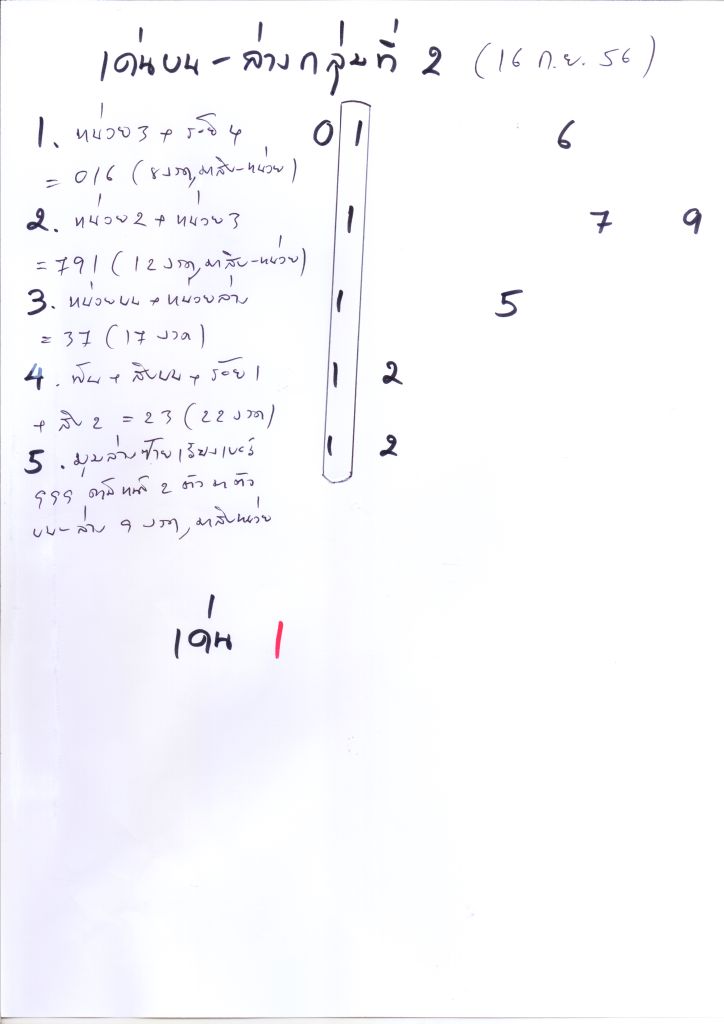 เด่นบน - ล่างกลุ่มที่ 2 (16 ก.ย. 56)
1. หน่วย 3 + ร้อย 4 0 1 6
= 016 (8 งวด, มาสิบ-หน่วย)
2. หน่วย 2 + หน่วย 3 1 7 9
= 791 (12 งวด, มาสิบ-หน่วย)
3. หน่วยบน + หน่วยล่าง 1 5
= 37 (17 งวด)
4. พัน + สิบบน + ร้อย 1 1 2
+ สิบ 2 = 23 (22 งวด)
5. มุมล่างซ้ายเรียงเบอร์ 1 2
2 ตัว มาตัว
บน-ล่าง 9 งวด, มาสิบหน่วย
เด่น 1